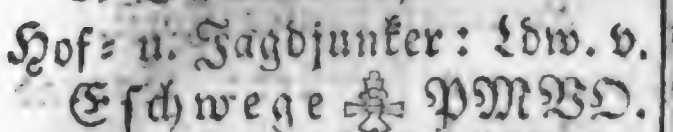 Hof- u. Jagdjunker: Ldw. v.
Eschwege PMVO.